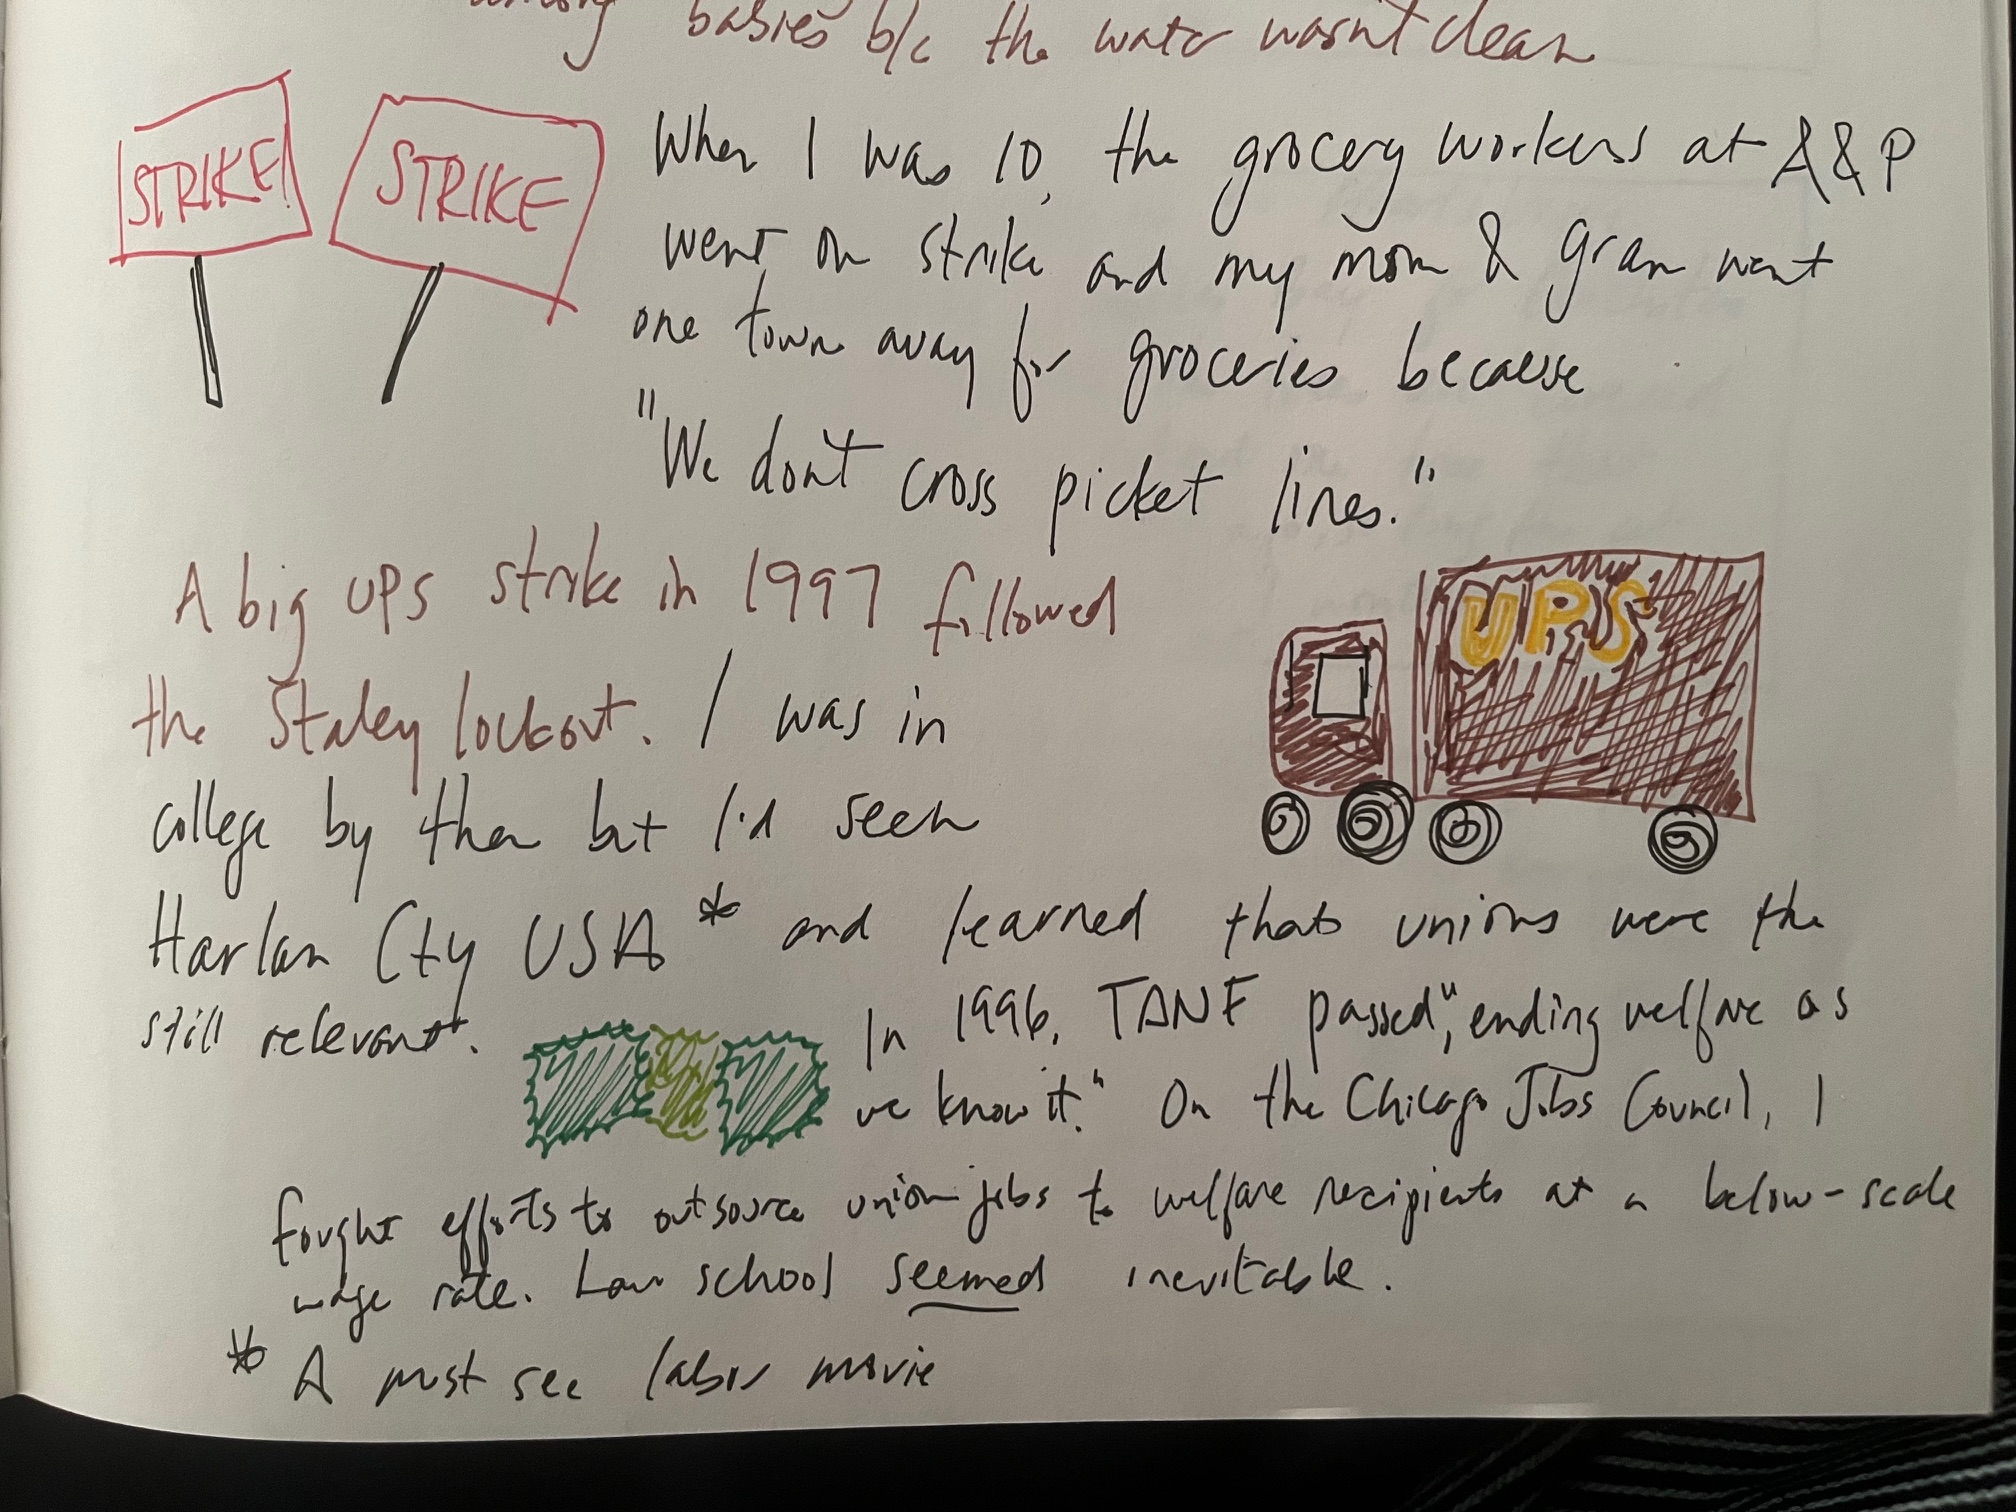 among babies b/c the water wasn't clean
STRIKE
STRIKE
When I was 10, the grocery workers at A&P
went on strike and my mom & gram went
one town away for groceries because
"We don't cross picket lines."
A big UPS strike in 1997 followed
the Staley lockout. I was in
UPS
college by then but I'd seen
Harlan Cty USA * and learned that unions were the
still relevant.
In 1996, TANF passed, "ending welfare as
we know it." On the Chicago Jobs Council, I
fought efforts to outsource union jobs to welfare recipients at a below-scale
wage rate. Law school seemed inevitable.
* A must see labor movie